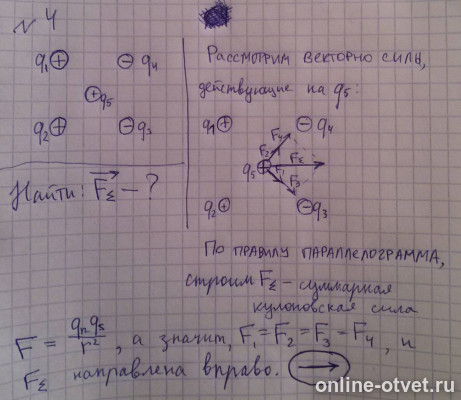 № 4
q₁⊕ ⊖ q₄
⊕q₅
q₂⊕ ⊖ q₃
Найти: F⃗_Σ - ?
Рассмотрим векторно силы,
действующие на q₅:
q₁⊕ ⊖q₄
F₄
F₂
q₅⊕ F_Σ
F₁
F₃
q₂⊕ ⊖q₃
По правилу параллелограмма,
строим F_Σ - суммарная
кулоновская сила
F = qₙq₅/r², а значит, F₁=F₂=F₃=F₄, и
F_Σ направлена вправо. →
online-otvet.ru